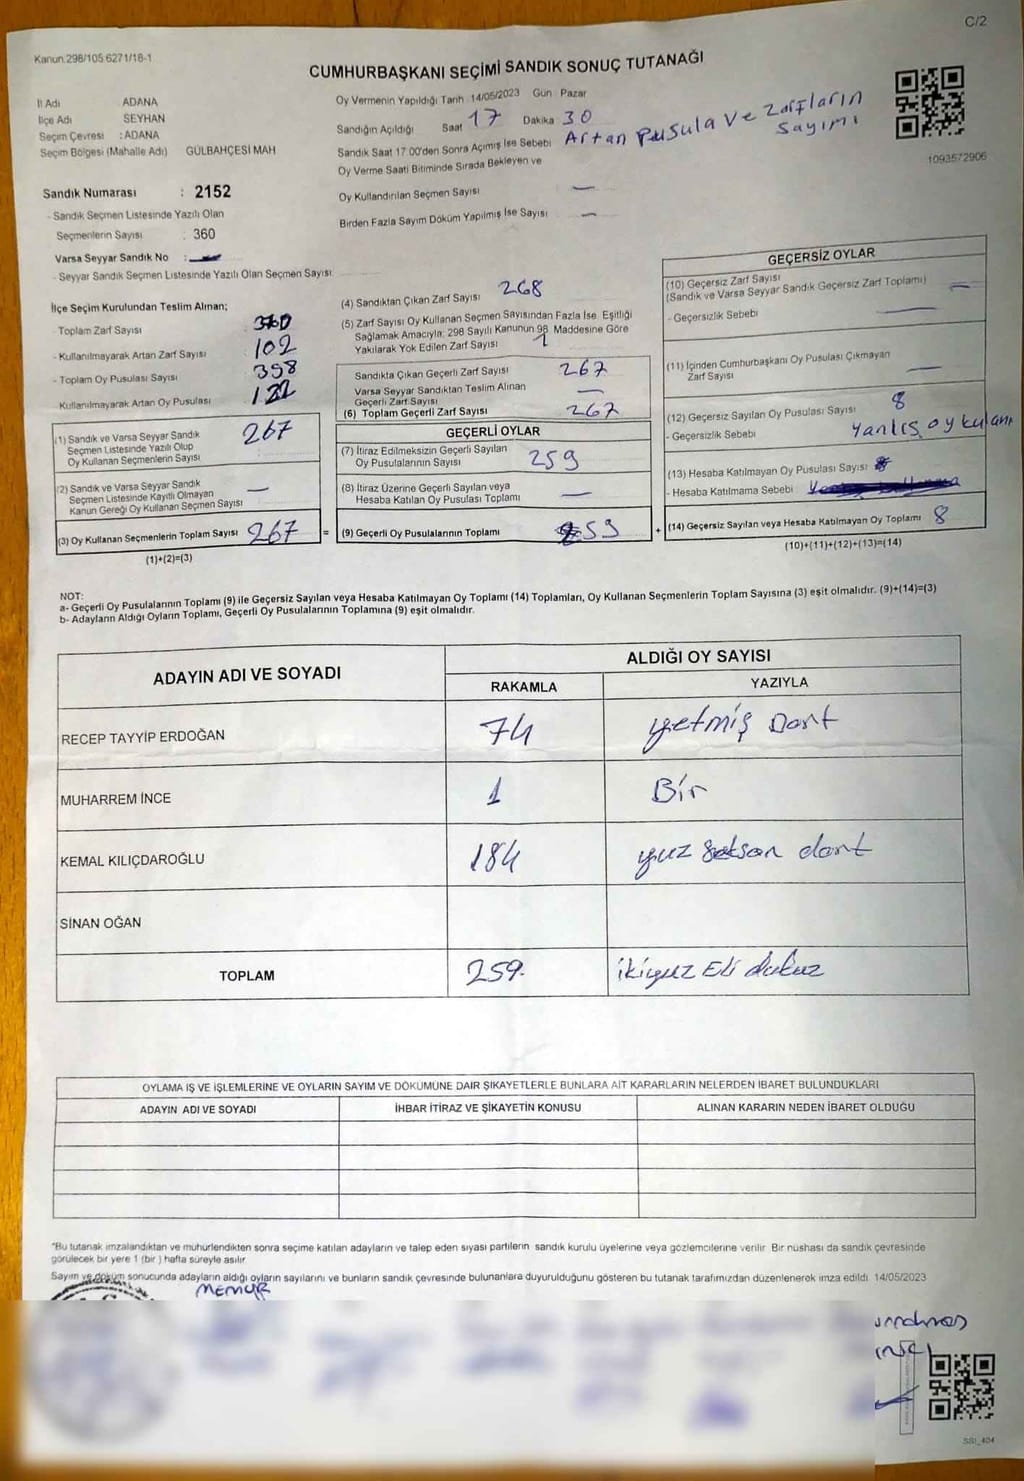 C/2
Kanun:298/105.6271/18-1
CUMHURBAŞKANI SEÇİMİ SANDIK SONUÇ TUTANAĞI
İl Adı ADANA
İlçe Adı SEYHAN
Seçim Çevresi : ADANA
Seçim Bölgesi (Mahalle Adı) GÜLBAHÇESİ MAH
Oy Vermenin Yapıldığı Tarih 14/05/2023 Gün Pazar
Sandığın Açıldığı Saat 17 Dakika 30
Sandık Saat 17 00'den Sonra Açımış İse Sebebi Artan Pusula Ve Zarfların Sayımı
Oy Verme Saati Bitiminde Sırada Bekleyen ve
Oy Kullandırılan Seçmen Sayısı —
Birden Fazla Sayım Döküm Yapılmış İse Sayısı —
1093572906
Sandık Numarası : 2152
- Sandık Seçmen Listesinde Yazılı Olan
Seçmenlerin Sayısı : 360
Varsa Seyyar Sandık No :
- Seyyar Sandık Seçmen Listesinde Yazılı Olan Seçmen Sayısı
İlçe Seçim Kurulundan Teslim Alınan;
- Toplam Zarf Sayısı
- Kullanılmayarak Artan Zarf Sayısı 102
- Toplam Oy Pusulası Sayısı 398
Kullanılmayarak Artan Oy Pusulası
(1) Sandık ve Varsa Seyyar Sandık
Seçmen Listesinde Yazılı Olup
Oy Kullanan Seçmenlerin Sayısı 267
(2) Sandık ve Varsa Seyyar Sandık
Seçmen Listesinde Kayıtlı Olmayan
Kanun Gereği Oy Kullanan Seçmen Sayısı —
(3) Oy Kullanan Seçmenlerin Toplam Sayısı 267 =
(1)+(2)=(3)
(4) Sandıktan Çıkan Zarf Sayısı 268
(5) Zarf Sayısı Oy Kullanan Seçmen Sayısından Fazla İse, Eşitliği
Sağlamak Amacıyla; 298 Sayılı Kanunun 98. Maddesine Göre
Yakılarak Yok Edilen Zarf Sayısı 1
Sandıkta Çıkan Geçerli Zarf Sayısı 267
Varsa Seyyar Sandıktan Teslim Alınan
Geçerli Zarf Sayısı —
(6) Toplam Geçerli Zarf Sayısı 267
GEÇERLİ OYLAR
(7) İtiraz Edilmeksizin Geçerli Sayılan
Oy Pusulalarının Sayısı 259
(8) İtiraz Üzerine Geçerli Sayılan veya
Hesaba Katılan Oy Pusulası Toplamı —
(9) Geçerli Oy Pusulalarının Toplamı 259 +
GEÇERSİZ OYLAR
(10) Geçersiz Zarf Sayısı
(Sandık ve Varsa Seyyar Sandık Geçersiz Zarf Toplamı) —
- Geçersizlik Sebebi —
(11) İçinden Cumhurbaşkanı Oy Pusulası Çıkmayan
Zarf Sayısı —
(12) Geçersiz Sayılan Oy Pusulası Sayısı 8
- Geçersizlik Sebebi Yanlış oy kulanı
(13) Hesaba Katılmayan Oy Pusulası Sayısı
- Hesaba Katılmama Sebebi
(14) Geçersiz Sayılan veya Hesaba Katılmayan Oy Toplamı 8
(10)+(11)+(12)+(13)=(14)
NOT:
a- Geçerli Oy Pusulalarının Toplamı (9) ile Geçersiz Sayılan veya Hesaba Katılmayan Oy Toplamı (14) Toplamları, Oy Kullanan Seçmenlerin Toplam Sayısına (3) eşit olmalıdır. (9)+(14)=(3)
b- Adayların Aldığı Oyların Toplamı, Geçerli Oy Pusulalarının Toplamına (9) eşit olmalıdır.
ADAYIN ADI VE SOYADI
ALDIĞI OY SAYISI
RAKAMLA YAZIYLA
RECEP TAYYİP ERDOĞAN 74 yetmiş Dört
MUHARREM İNCE 1 Bir
KEMAL KILIÇDAROĞLU 184 yüz seksen dört
SİNAN OĞAN
TOPLAM 259 ikiyuz Eli dokuz
OYLAMA İŞ VE İŞLEMLERİNE VE OYLARIN SAYIM VE DÖKÜMÜNE DAİR ŞİKAYETLERLE BUNLARA AİT KARARLARIN NELERDEN İBARET BULUNDUKLARI
ADAYIN ADI VE SOYADI İHBAR İTİRAZ VE ŞİKAYETİN KONUSU ALINAN KARARIN NEDEN İBARET OLDUĞU
*Bu tutanak imzalandıktan ve mühürlendikten sonra seçime katılan adayların ve talep eden siyasi partilerin sandık kurulu üyelerine veya gözlemcilerine verilir. Bir nüshası da sandık çevresinde
görülecek bir yere 1 (bir ) hafta süreyle asılır.
Sayım ve döküm sonucunda adayların aldığı oyların sayılarını ve bunların sandık çevresinde bulunanlara duyurulduğunu gösteren bu tutanak tarafımızdan düzenlenerek imza edildi. 14/05/2023
MEMUR
SSI_404